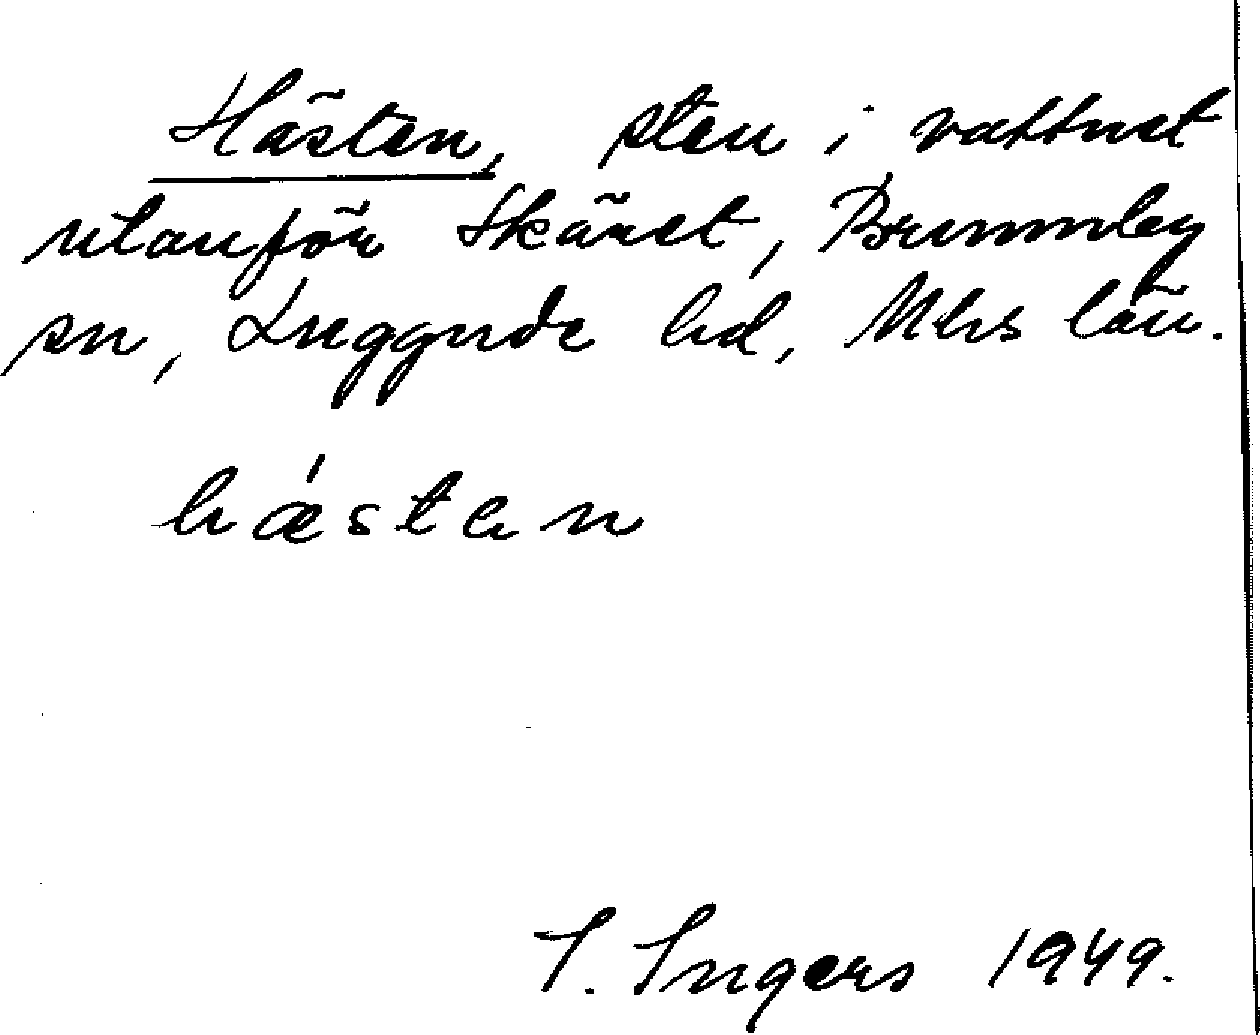 Hästen, sten i vattnet
utanför Skäret, Brunnby
sn, Luggude hd, Mhs län.
hǽsten
I. Ingers 1949.